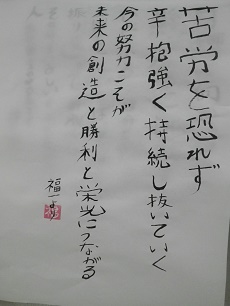 苦労を恐れず
辛抱強く持続し抜いていく
今の努力こそが
未来の創造と勝利と栄光につながる
福一より